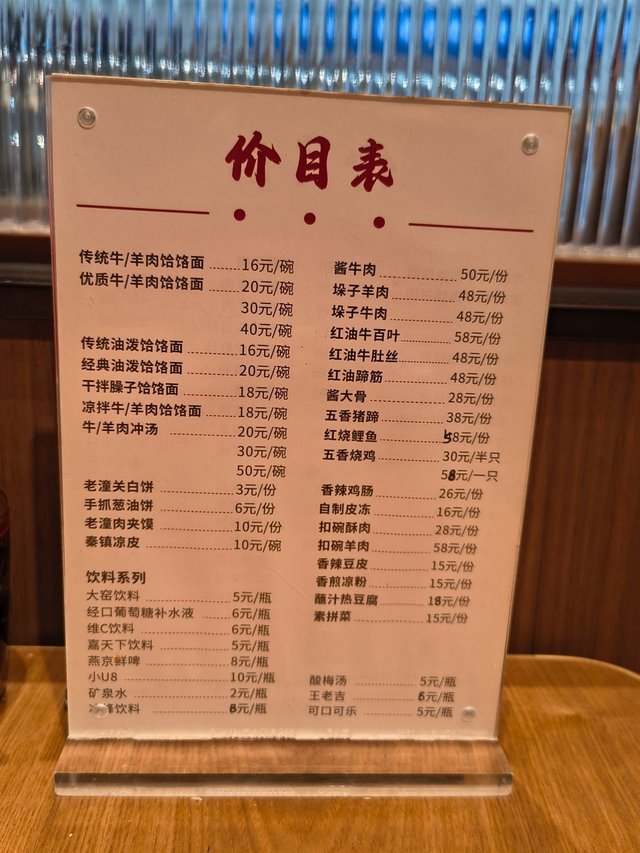 价目表
传统牛/羊肉饸饹面 16元/碗
优质牛/羊肉饸饹面 20元/碗
30元/碗
40元/碗
传统油泼饸饹面 16元/碗
经典油泼饸饹面 20元/碗
干拌臊子饸饹面 18元/碗
凉拌牛/羊肉饸饹面 18元/碗
牛/羊肉冲汤 20元/碗
30元/碗
50元/碗
老潼关白饼 3元/份
手抓葱油饼 6元/份
老潼肉夹馍 10元/份
秦镇凉皮 10元/碗
饮料系列
大窑饮料 5元/瓶
经口葡萄糖补水液 6元/瓶
维C饮料 6元/瓶
嘉天下饮料 5元/瓶
燕京鲜啤 8元/瓶
小U8 10元/瓶
矿泉水 2元/瓶
峰饮料 元/瓶
酱牛肉 50元/份
垛子羊肉 48元/份
垛子牛肉 48元/份
红油牛百叶 58元/份
红油牛肚丝 48元/份
红油蹄筋 48元/份
酱大骨 28元/份
五香猪蹄 38元/份
红烧鲤鱼 58元/份
五香烧鸡 30元/半只
58元/一只
香辣鸡肠 26元/份
自制皮冻 16元/份
扣碗酥肉 28元/份
扣碗羊肉 58元/份
香辣豆皮 15元/份
香煎凉粉 15元/份
蘸汁热豆腐 18元/份
素拼菜 15元/份
酸梅汤 5元/瓶
王老吉 6元/瓶
可口可乐 5元/瓶